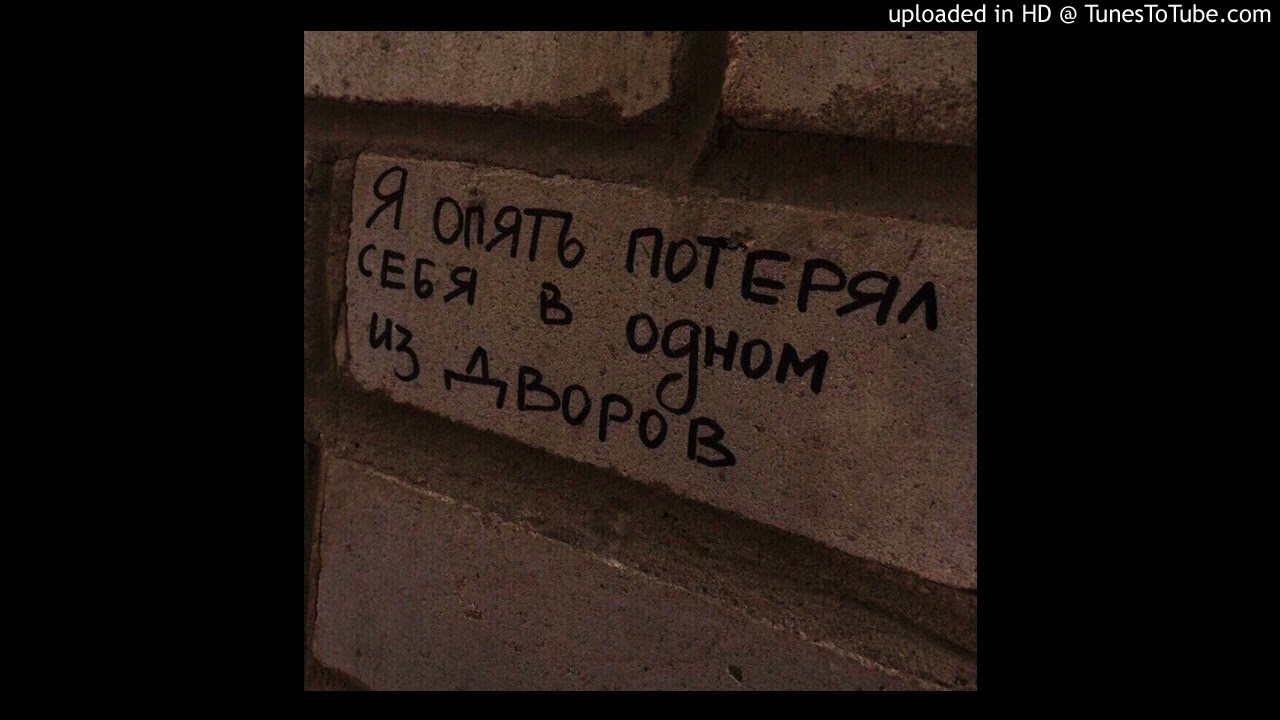 uploaded in HD @ TunesToTube.com
Я ОПЯТЬ ПОТЕРЯЛ
СЕБЯ В ОДНОМ
ИЗ ДВОРОВ